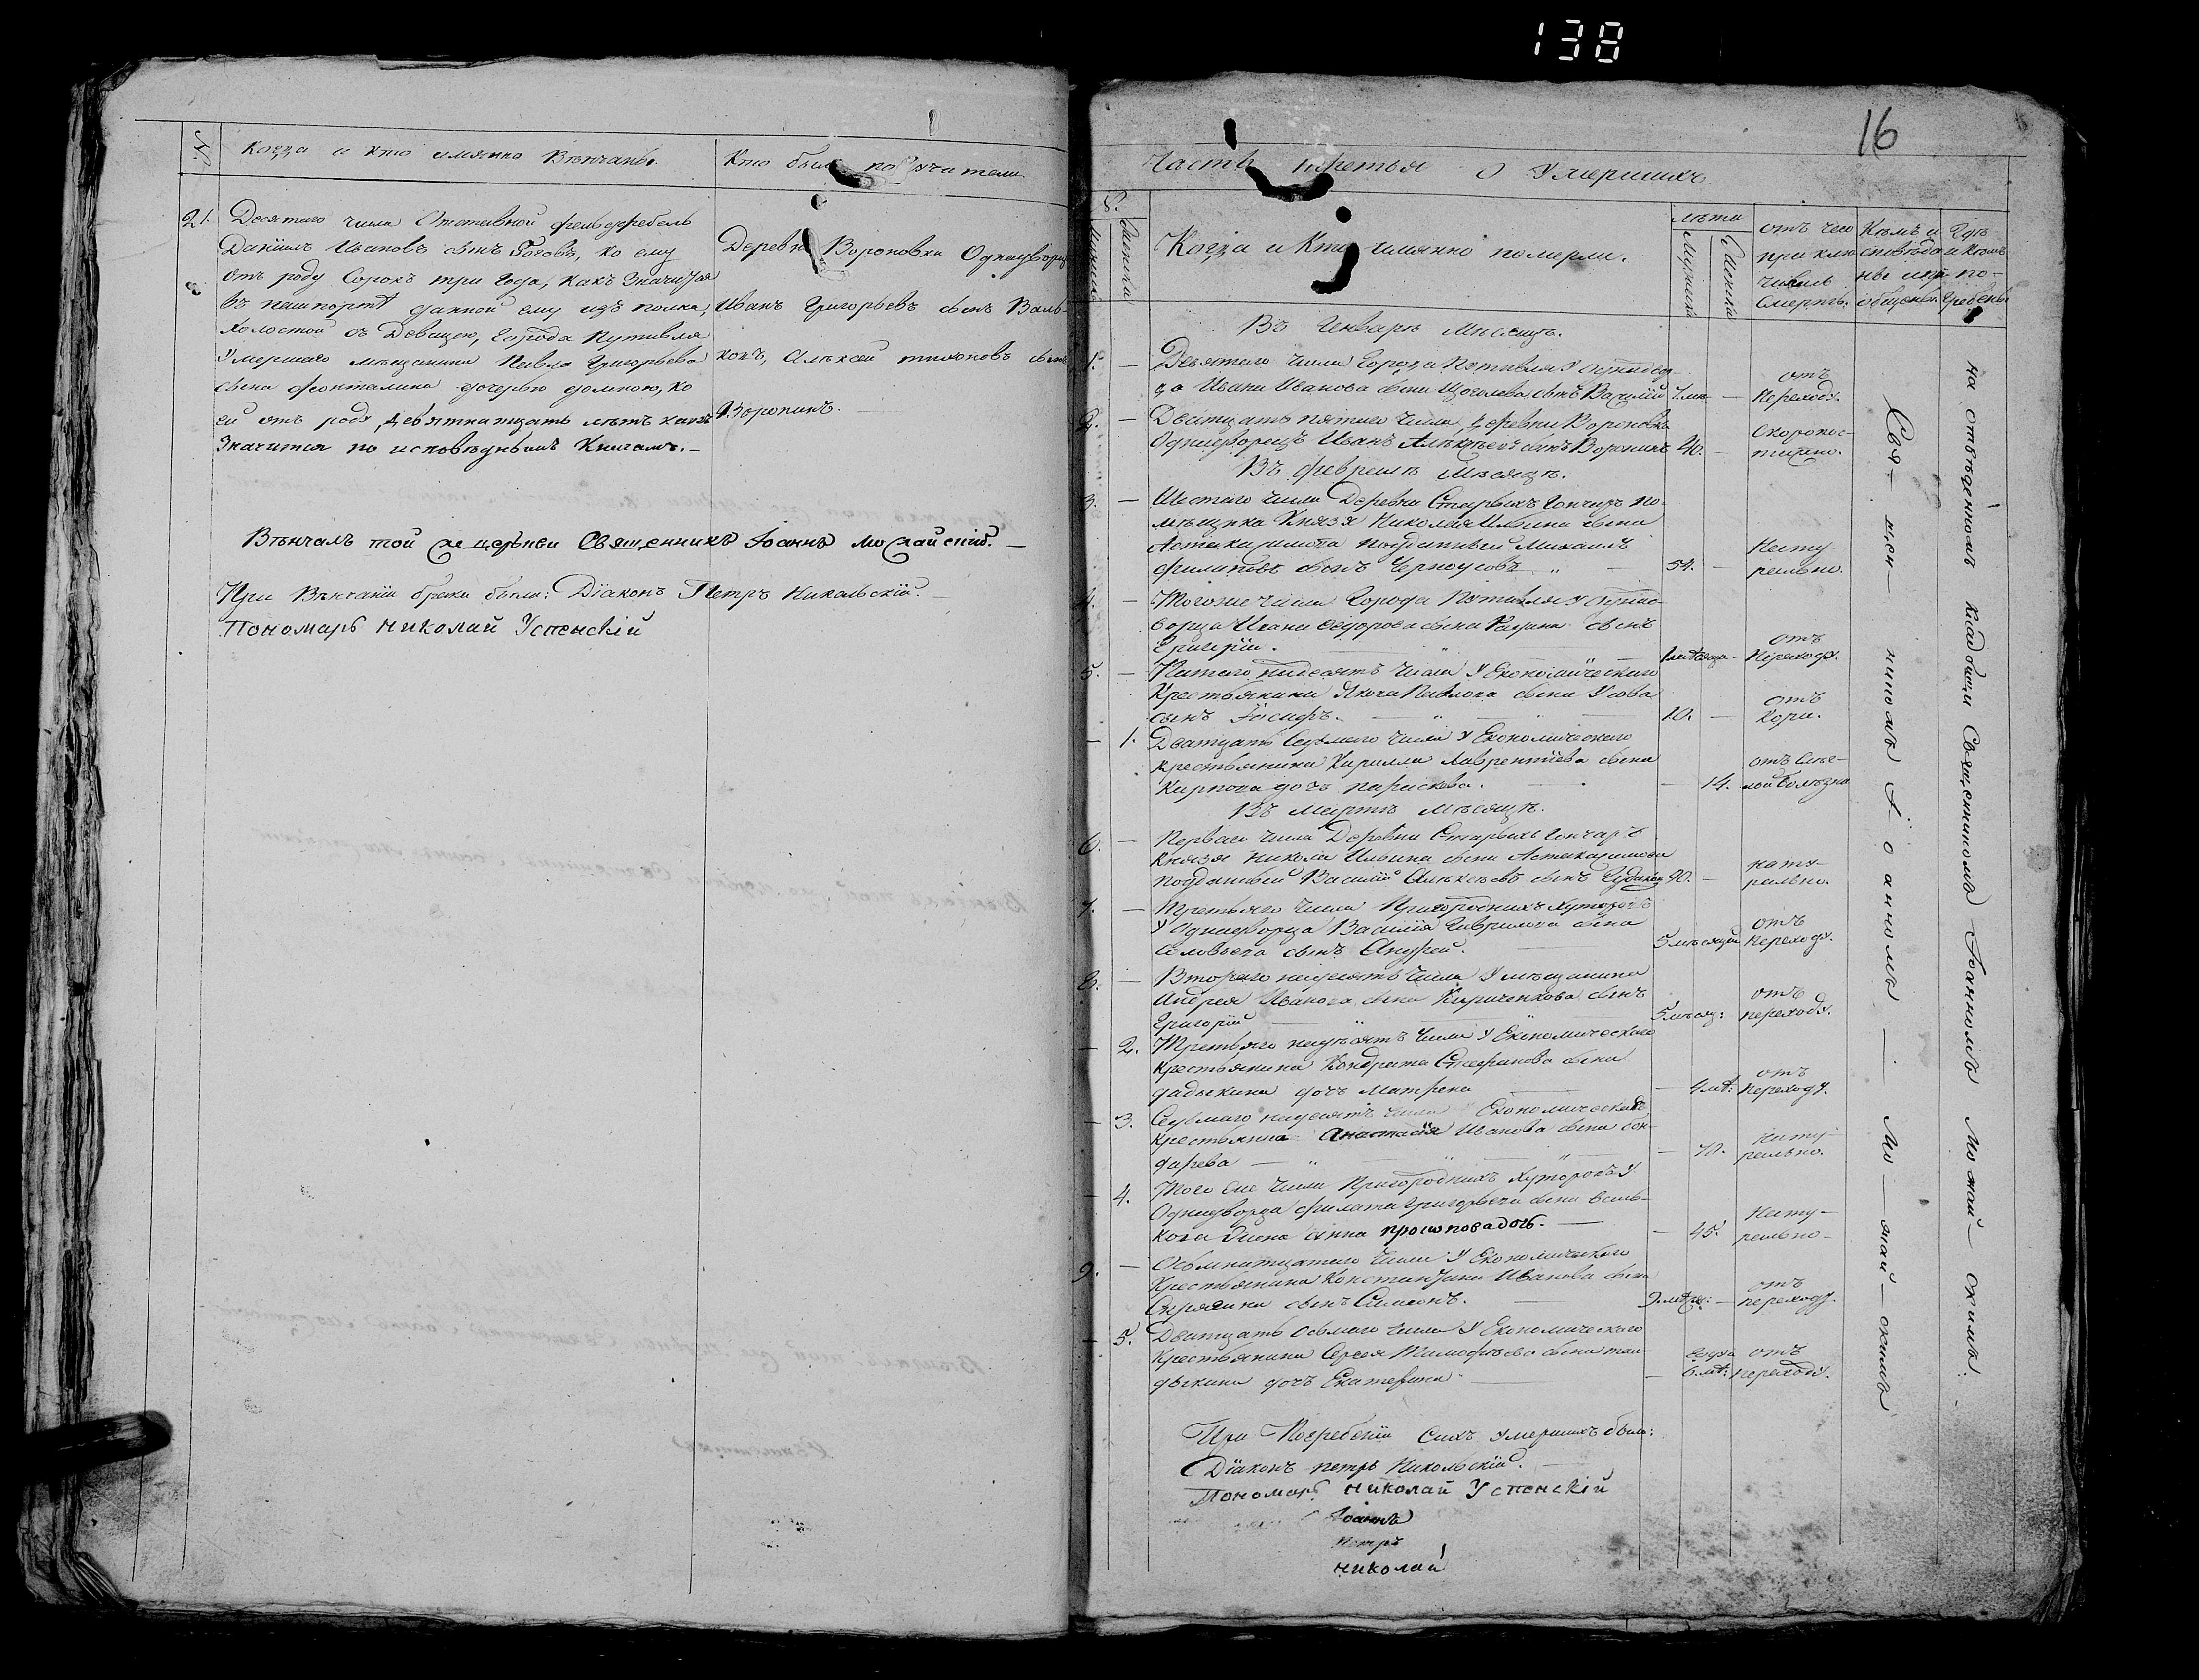 138
16
№
Когда и кто имянно Венчаны.
Кто был по ручители
21.
Десятаго числа Отставной фельдфебель
Даніилъ Ивановъ сынъ Гоговъ, ко ему
отъ роду Сорокъ три года, какъ значится
въ пашпортѣ данной ему изъ полка,
холостой съ Девицею, города Путивля
Умершаго мещанина Павла Григорьева
сына дочерью домною, ко
ей отъ роду девятнатцать летъ какъ
значится по исповѣднымъ Книгамъ.
Деревни Вороновки Однодворцы
Иванъ Григорьевъ сынъ Валь-
ковъ, Алѣксей сынъ
Воронинъ.
Венчалъ той же церкви Священникъ Іоаннъ Можайскій.
При Венчаніи брака были: Діаконъ Петръ Никольскій.
Пономарь Николай Успенскій
Часть третья о Умершихъ
Когда и Кто имянно померли.
лѣта
Мужеска
Женска
отъ чего
приклю
чилась
смерть.
Кѣмъ и
сповѣдо
ны и прі
общены.
Гдѣ
и кѣмъ
по-
гребены
Въ Генварѣ Месяцѣ.
1. — Девятаго числа города Путивля У однодвор
ца Ивана Иванова сына Щеголева сынъ Василій
отъ
Переходу.
2. — Дватцать пятаго числа, деревни Вороновки
Однодворецъ Иванъ Алѣксѣевъ сынъ Воронинъ 40. —
Скоропос-
тижно.
Въ февралѣ Месяцѣ.
3. — Шестаго числа Деревни Старыхъ Гончаръ по-
мещика Князя Николая Ильина сына
подданный Михаилъ
филиповъ сынъ Черноусовъ 54. —
Нату-
рально.
4. — Тогоже числа города Путивля У однод-
ворца Ивана Федорова сына сынъ
Григорій.
отъ
Переходу.
5. — Пятаго надесять числа У Економическаго
Крестьянина Якова Павлова сына Усова
сынъ Іосифъ. 10. —
отъ
Кори.
— 1. Дватцать Седьмаго числа У Економическаго
крестьянина Кирилла Лаврентіева сына
Карпова дочь параскева. — 14.
Въ Мартѣ Месяцѣ.
6. — Перваго числа Деревни Старыхъ Гончаръ
Князя Николая Ильина сына
подданный Василій Алѣксѣевъ сынъ 90. —
нату-
рально.
7. — Третьяго числа Пригородныхъ Хуторовъ
У Однодворца Василія Гаврилова сына
Соловьева сынъ Андрей. 5 месяцей
отъ
переходу.
8. — Втораго надесять числа У мещанина
Андрея Иванова сына Кириченкова сынъ
Григорій 5 месяц:
отъ
переходу.
— 2. Третьяго надесять числа У Економическаго
Крестьянина Кондрата Стефанова сына
дадыкина дочь Матрена — 4 лѣт:
отъ
Переходу.
— 3. Седьмаго надесять числа Економическаго
крестьянина Анастасія Иванова сына
— 70.
нату-
рально.
— 4. Того же числа Пригородныхъ Хуторовъ У
Однодворца филата Григорьева сына валь-
кова жена Анна — 45.
Нату-
рально
9. — Осьмнатцатаго числа У Економическаго
Крестьянина Константина Иванова сына
сынъ Симеонъ.
отъ
переходу.
— 5. Дватцать Осьмаго числа У Економическаго
Крестьянина Сергея Тимофѣева сына
дочь Екатерина
отъ
переходу.
Свя-щен-никомъ Іоанномъ Мо-жай-скимъ
на отведенномъ кладбищи Священникомъ Іоанномъ Можай-скимъ.
При Погребеніи Сихъ умершихъ были:
Діаконъ петръ Никольскій.
Пономарь Николай Успенскій
Іоаннъ
Петръ
Николай